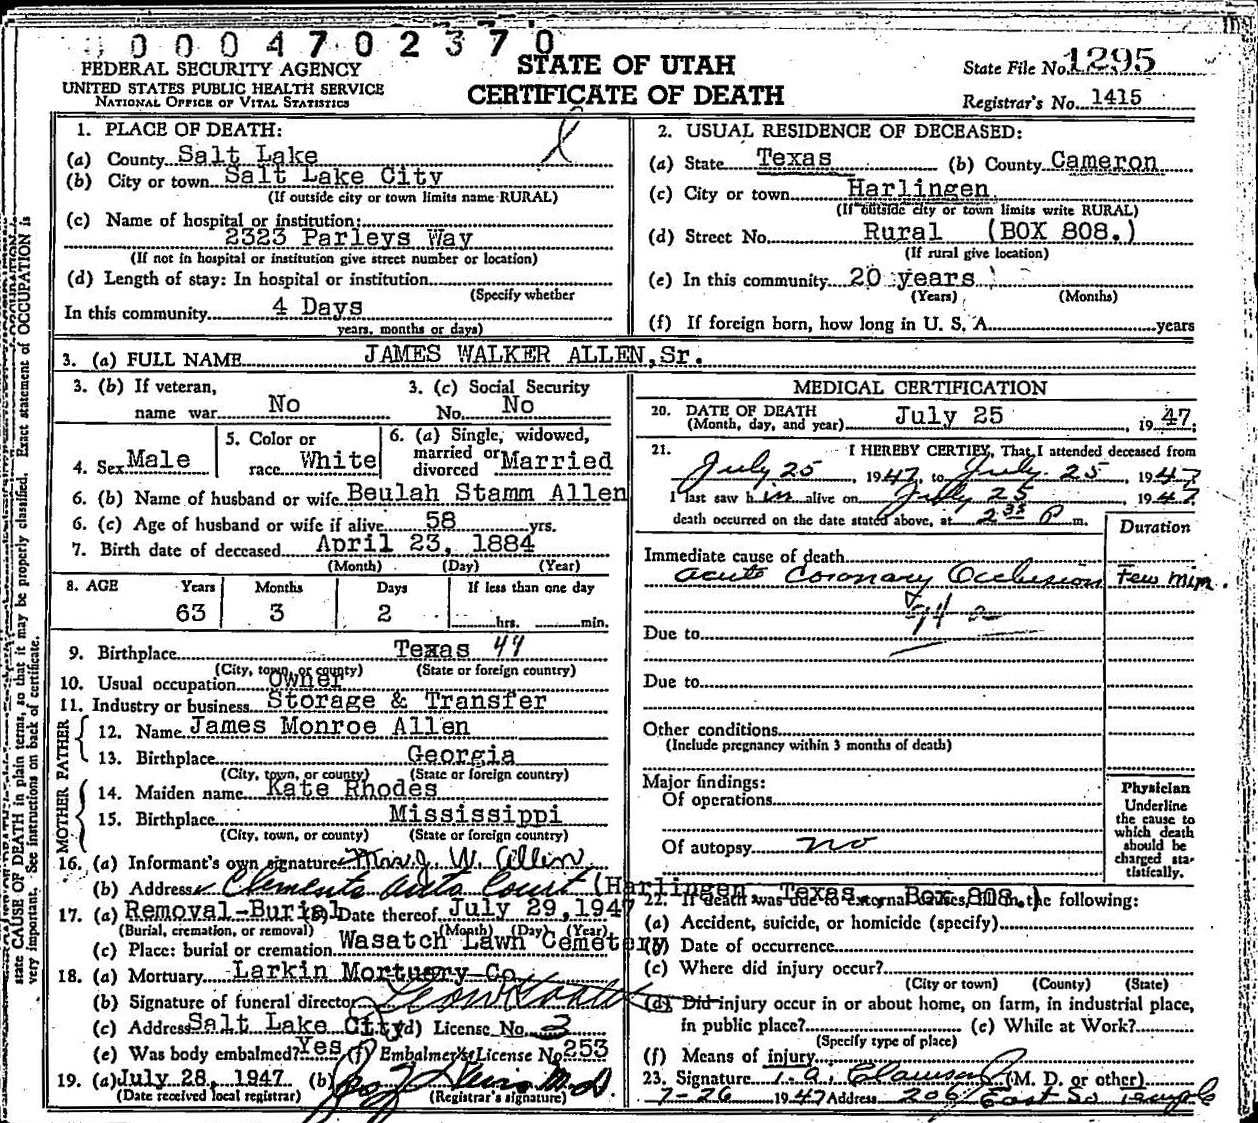 0004702370
FEDERAL SECURITY AGENCY
UNITED STATES PUBLIC HEALTH SERVICE
NATIONAL OFFICE OF VITAL STATISTICS
STATE OF UTAH
CERTIFICATE OF DEATH
State File No. 1295
Registrar's No. 1415
1. PLACE OF DEATH:
(a) County Salt Lake
(b) City or town Salt Lake City
(If outside city or town limits name RURAL)
(c) Name of hospital or institution:
2323 Parleys Way
(If not in hospital or institution give street number or location)
(d) Length of stay: In hospital or institution
(Specify whether
In this community 4 Days
years, months or days)
2. USUAL RESIDENCE OF DECEASED:
(a) State Texas (b) County Cameron
(c) City or town Harlingen
(If outside city or town limits write RURAL)
(d) Street No. Rural (BOX 808.)
(If rural give location)
(e) In this community 20 years
(Years) (Months)
(f) If foreign born, how long in U. S. A. years
3. (a) FULL NAME JAMES WALKER ALLEN, Sr.
3. (b) If veteran, name war No
3. (c) Social Security No. No
4. Sex Male
5. Color or race White
6. (a) Single, widowed, married or divorced Married
6. (b) Name of husband or wife Beulah Stamm Allen
6. (c) Age of husband or wife if alive 58 yrs.
7. Birth date of deceased April 23, 1884
(Month) (Day) (Year)
8. AGE Years Months Days If less than one day
63 3 2 hrs. min.
9. Birthplace Texas 44
(City, town, or county) (State or foreign country)
10. Usual occupation Owner
11. Industry or business Storage & Transfer
FATHER
12. Name James Monroe Allen
13. Birthplace Georgia
(City, town, or county) (State or foreign country)
MOTHER
14. Maiden name Kate Rhodes
15. Birthplace Mississippi
(City, town, or county) (State or foreign country)
16. (a) Informant's own signature W. Allen
(b) Address Clements Auto Court (Harlingen, Texas Box 808.)
17. (a) Removal-Burial (b) Date thereof July 29, 1947
(Burial, cremation, or removal) (Month) (Day) (Year)
(c) Place: burial or cremation Wasatch Lawn Cemetery
18. (a) Mortuary Larkin Mortuary Co
(b) Signature of funeral director
(c) Address Salt Lake City (d) License No. 3
(e) Was body embalmed? Yes (f) Embalmer's License No. 253
19. (a) July 28, 1947 (b) M. D.
(Date received local registrar) (Registrar's signature)
MEDICAL CERTIFICATION
20. DATE OF DEATH July 25, 1947;
(Month, day, and year)
21. I HEREBY CERTIFY, That I attended deceased from
July 25, 1947, to July 25, 1947
I last saw him alive on July 25 1947
death occurred on the date stated above, at 2 35 P m.
Duration
Immediate cause of death
acute Coronary Occlusion Few min.
94 a
Due to
Due to
Other conditions
(Include pregnancy within 3 months of death)
Major findings:
Of operations
Of autopsy no
Physician
Underline
the cause to
which death
should be
charged sta-
tistically.
22. If death was due to external causes, fill in the following:
(a) Accident, suicide, or homicide (specify)
(b) Date of occurrence
(c) Where did injury occur?
(City or town) (County) (State)
(d) Did injury occur in or about home, on farm, in industrial place,
in public place? (e) While at Work?
(Specify type of place)
(f) Means of injury
23. Signature (M. D. or other)
7-26 1947 Address 206 East So Temple
state CAUSE OF DEATH in plain terms, so that it may be properly classified. Exact statement of OCCUPATION is
very important. See instructions on back of certificate.